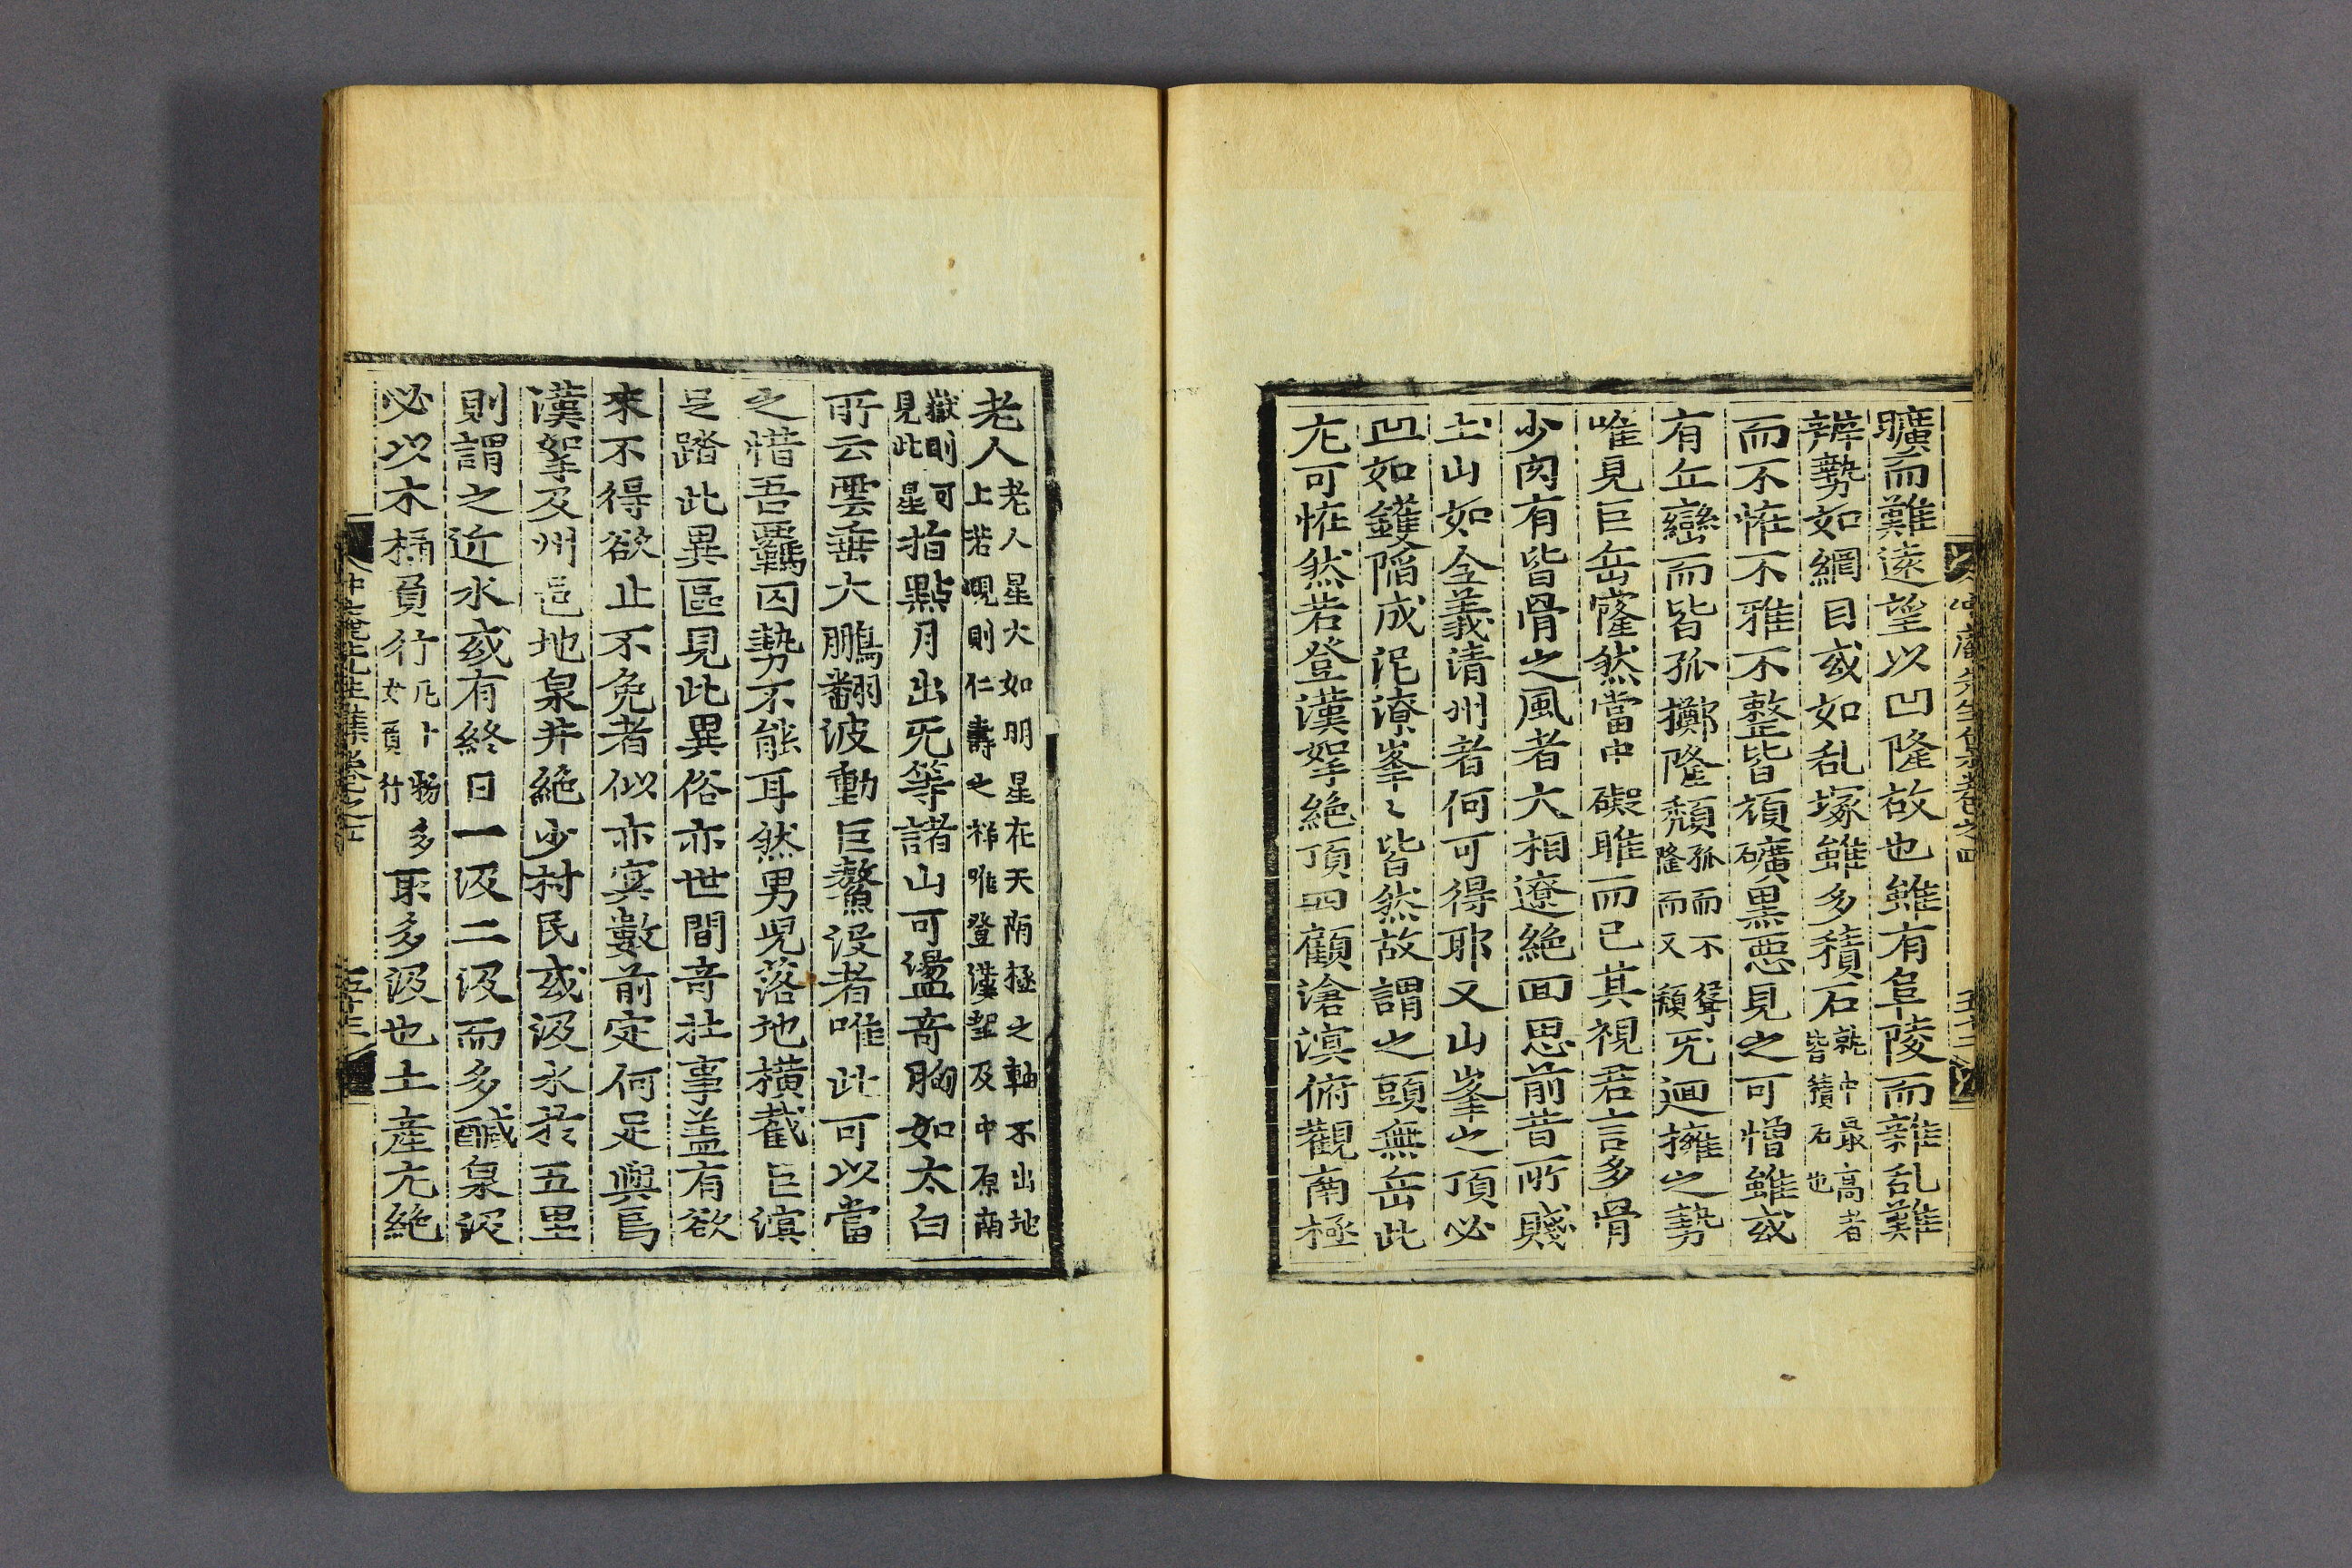 曠而難遠望以凹隆故也雖有阜陵而雜乱難
辨勢如綱目或如乱塚雖多積石就中最高者皆積石也
而不恠不雅不整皆頑礦黑惡見之可憎雖或
有丘巒而皆孤擲隆頹孤而不聳隆而又頹旡迴擁之勢
唯見巨岳窿然當中礙睢而已其視君言多骨
少肉有皆骨之風者大相遼絶面思前昔所賤
土山如全義淸州者何可得耶又山峯之頂必
凹如鑊陷成泥潦峯〻皆然故謂之頭無岳此
尤可恠然若登漢挐絶頂四顧滄溟俯觀南極
老人老人星大如明星在天南極之軸不出地上若現則仁壽之祥唯登漢挐及中原南
嶽則可見此星指點月出旡等諸山可盪奇胸如太白
所云雲垂大鵬翻波動巨鰲没者唯此可以當
之惜吾羈囚勢不能耳然男兒落地横截巨溟
足踏此異區見此異俗亦世間奇壯事盖有欲
來不得欲止不免者似亦㝠數前定何足與焉
漢挐及州邑地泉井絶少村民或汲水於五里
則謂之近水或有終日一汲二汲而多醎泉汲
必以木桶負行女負行多取多汲也土産尤絶
冲庵先生集卷之四